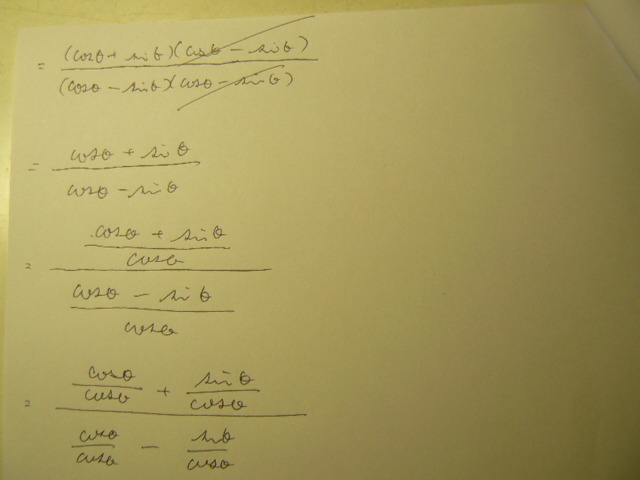 = (cosθ + sinθ)(cosθ - sinθ)
(cosθ - sinθ)(cosθ - sinθ)
= cosθ + sinθ
cosθ - sinθ
= cosθ + sinθ
cosθ
cosθ - sinθ
cosθ
= cosθ + sinθ
cosθ cosθ
cosθ - sinθ
cosθ cosθ